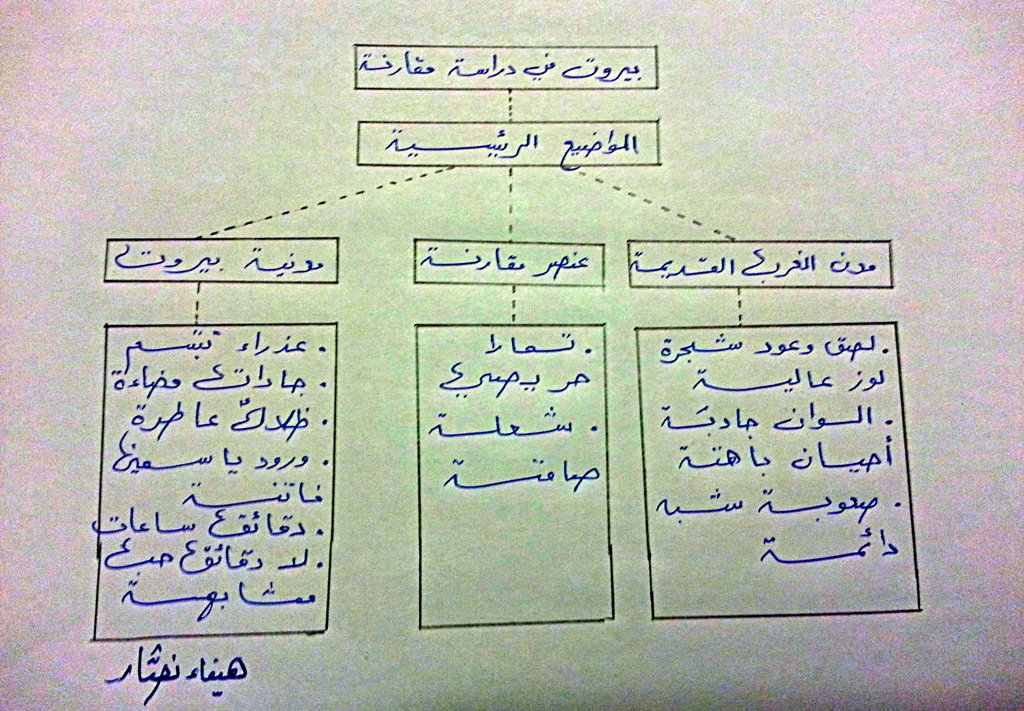 بيروت في دراسة مقارنة
المواضيع الرئيسية
مدن الغرب القديمة
عنصر مقارنة
مدنية بيروت
. لصق وعود شجرة
لوز عالية
. الوان جاذبَة
أحيان باهتة
. صعوبة شبه
دائمة
. تـ
حر يصري
. شعلة
صامتة
. عذراء تبتسم
. جادات وضاءة
. ظلالٌ عاطرة
. ورود ياسمين
فاتنة
. دقائق ساعات
. لا دقائق حب
مشابهة
هيفاء نصّار